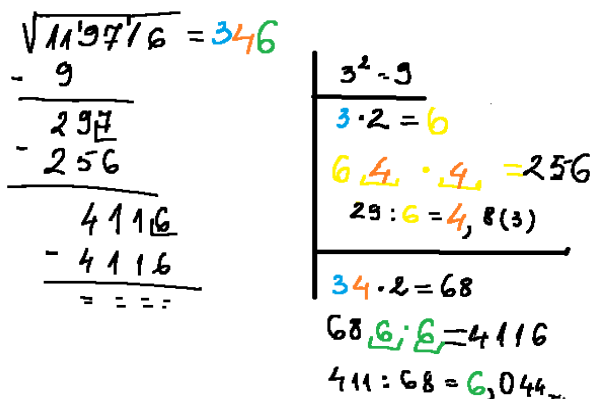 √11'97'16 = 346
- 9
297
- 256
4116
- 4116
= = = =
3² - 9
3 · 2 = 6
6 4 · 4 = 256
29 : 6 = 4, 8(3)
34 · 2 = 68
68 6 · 6 = 4116
411 : 68 = 6,044...